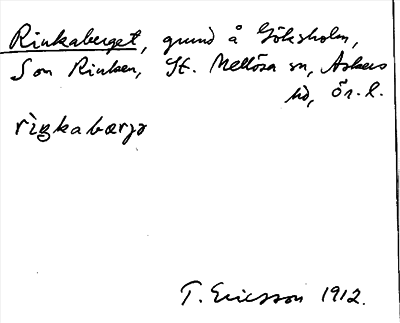 Rinkaberget, grund å Göksholm,
Son Rinken, St. Mellösa sn, Askers
hd, Ör. l.
rìŋkabærjə
T. Ericsson 1912.